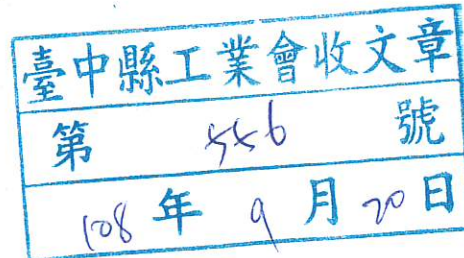 臺中縣工業會收文章
第 556 號
108 年 9 月 20 日